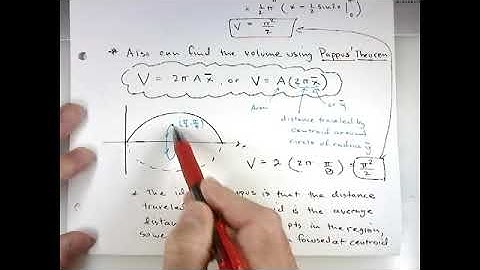 = ½π (x − ½ sin2x |
V = π²/2
* Also can find the volume using Pappus' Theorem
V = 2πAx̄, or V = A(2πx̄)
or ȳ
Area
distance traveled by
centroid around
circle of radius ȳ
(π/2, π/8)
x
V = 2 (2π π/8) = π²/2
* The id is that the distance
travele id is the average
distan pts in the region,
so we focused at centroid